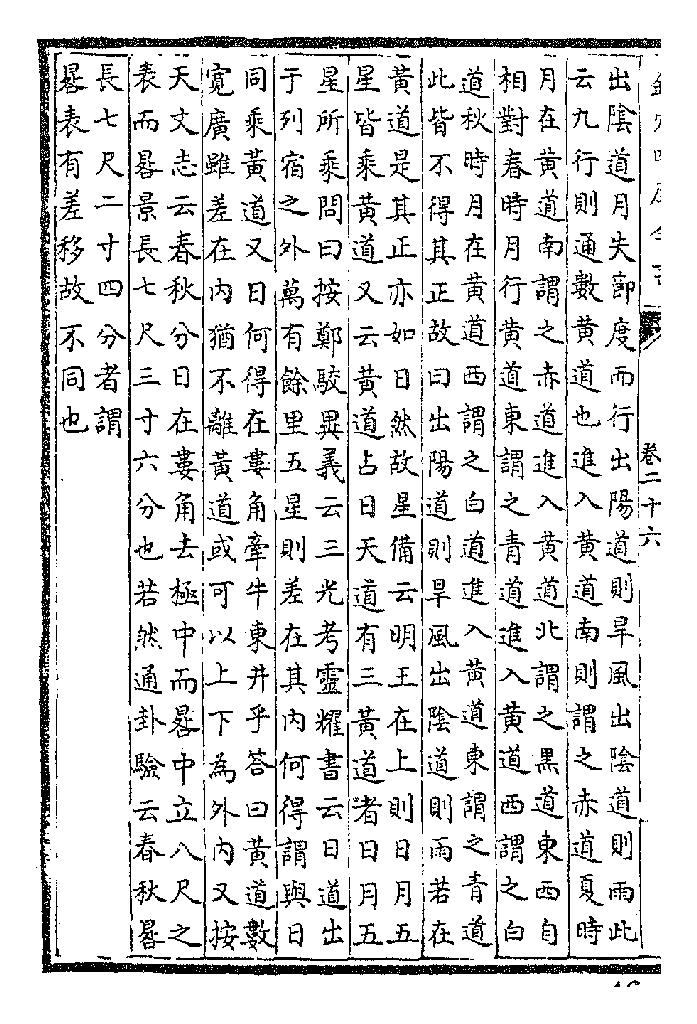 卷二十六
出陰道月失節度而行出陽道則旱風出陰道則雨此
云九行則通數黄道也進入黄道南則謂之赤道夏時
月在黄道南謂之赤道進入黄道北謂之黒道東西自
相對春時月行黄道東謂之青道進入黄道西謂之白
道秋時月在黄道西謂之白道進入黄道東謂之青道
此皆不得其正故曰出陽道則旱風出陰道則雨若在
黄道是其正亦如日然故星備云明王在上則日月五
星皆乘黄道又云黄道占日天道有三黄道者日月五
星所乘問曰按鄭駮異義云三光考靈耀書云日道出
于列宿之外萬有餘里五星則差在其内何得謂與日
同乘黄道又日何得在婁角牽牛東井乎答曰黄道數
寛廣雖差在内猶不離黄道或可以上下為外内又按
天文志云春秋分日在婁角去極中而晷中立八尺之
表而晷景長七尺三寸六分也若然通卦驗云春秋晷
長七尺二寸四分者謂
晷表有差移故不同也